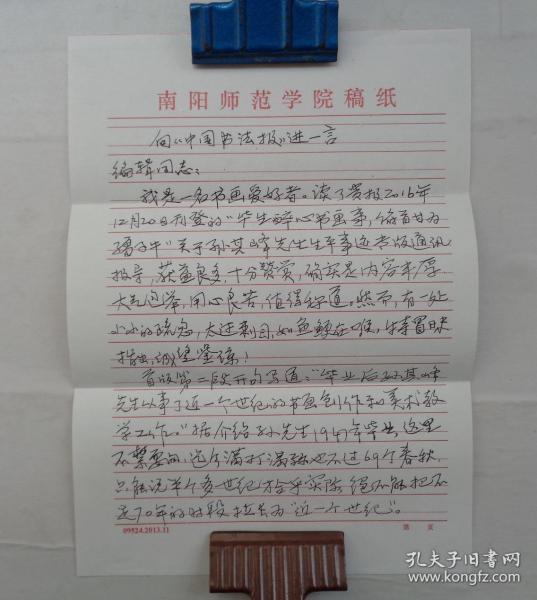 南阳师范学院稿纸
向《中国书法报》进一言
编辑同志：
我是一名书画爱好者。读了贵报2016年
12月20日刊登的“毕生醉心书画事，俯首甘为
孺子牛”关于孙其峰先生生平事迹专版通讯
报导，获益良多，十分赞赏，确实是内容丰厚
大气过举，用心良苦，值得称道。然而，有一处
小小的疏忽，太过刺目，如鱼鲠在喉，牛季冒昧
指出，诚望鉴谅！
首版第二段开句写道：“毕业后孙其峰
先生从事了近一个世纪的书画创作和美术教
学工作。”据介绍孙先生1947年毕业，这里
不禁要问，迄今满打满算也不过69个春秋，
只能说半个多世纪才合乎实际，绝不能把不
足70年的时段拉长为“近一个世纪”。
09524.2013.11
第 页
孔夫子旧书网
www.kongfz.com